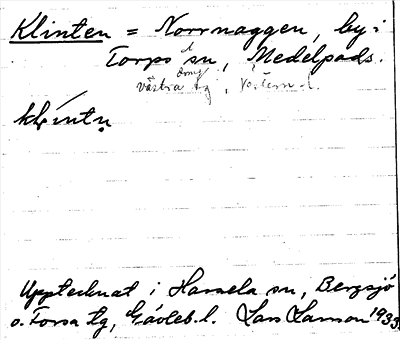 Klinten = Norrnaggen, by i
Torps sn, Medelpads.
västra tg, Västern. l.
klintn
Upptecknat i Hassela sn, Bergsjö
o. Forsa tg, Gävleb. l. Lars Larsson 1933.